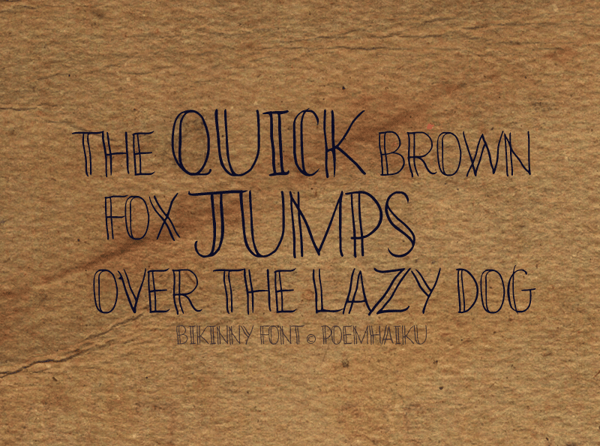 THE QUICK BROWN
FOX JUMPS
OVER THE LAZY DOG
BIKINNY FONT © POEMHAIKU